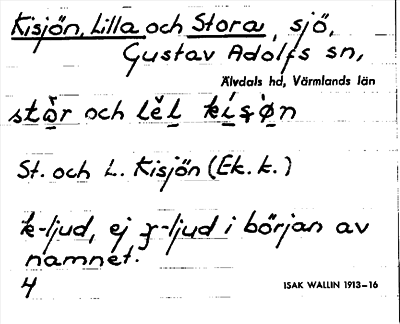 Kisjön, Lilla och Stora, sjö,
Gustav Adolfs sn,
Älvdals hd, Värmlands län
och
St. och L. Kisjön (Ek. k.)
k-ljud, ej ɣ-ljud i början av
namnet.
4
ISAK WALLIN 1913–16